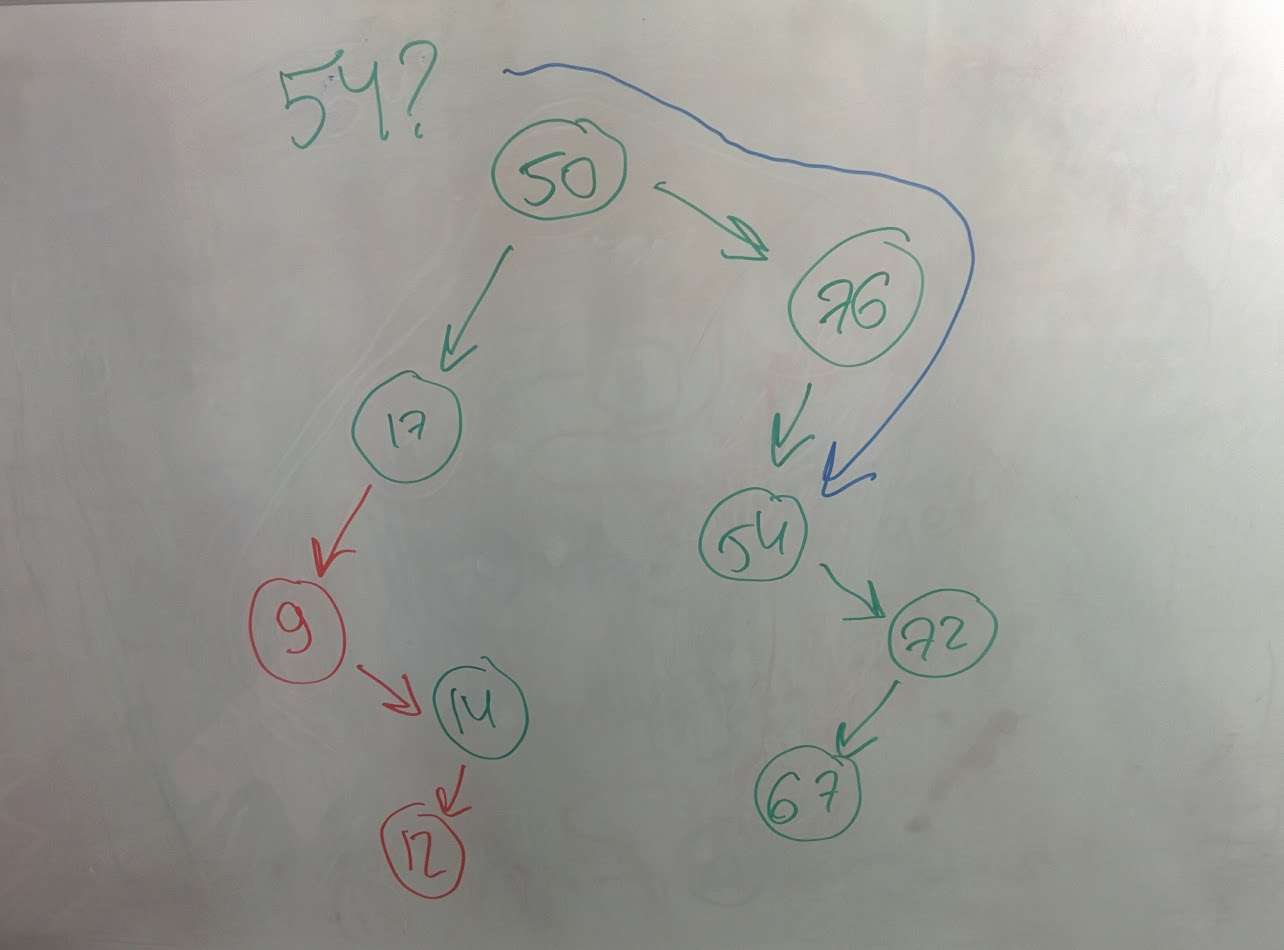 54?
50
76
17
54
9
72
14
67
12